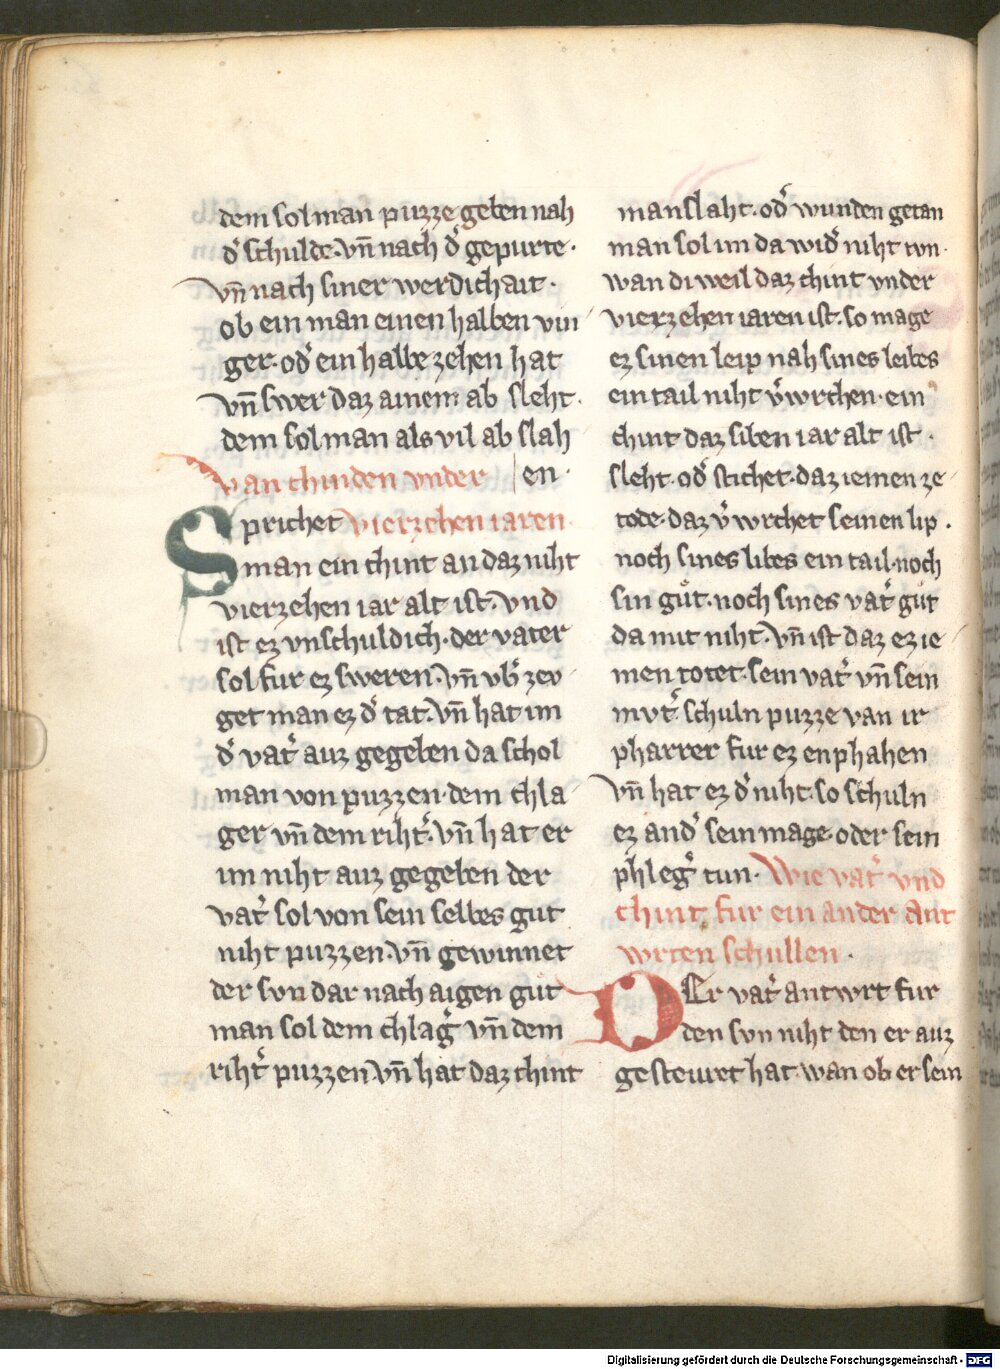 dem sol man puzze geben nah
d̓ schulde. vn̄ nach d̓ gepurte.
vn̄ nach siner werdichait.
ob ein man einen halben vin
ger. od̓ ein halbe zehen hat
vn̄ swer daz ainem ab sleht.
dem sol man als vil ab slah
van chinden vnder en.
Sprichet vierzehen iaren
man ein chint an daz niht
vierzehen iar alt ist. vnd
ist ez vnschuldich. der vater
sol fur ez sweren. vn̄ vb̓ zev
get man ez d̓ tat. vn̄ hat im
d̓ vat̓ auz gegeben da schol
man von puzzen dem chla
ger vn̄ dem riht̓. vn̄ hat er
im niht auz gegeben der
vat̓ sol von sein selbes gut
niht puzzen. vn̄ gewinnet
der svn dar nach aigen gut
man sol dem chlag̓ vn̄ dem
riht̓ puzzen vn̄ hat daz chint
manslaht. od̓ wunden getan
man sol im da wid̓ niht tvn.
wan di weil daz chint vnder
vierzehen iaren ist. so mage
ez sinen leip nah sines leibes
ein tail niht v̓wrchen. ein
chint daz siben iar alt ist.
sleht. od̓ stichet. daz iemen ze
tode. daz v̓wrchet seinen lip.
noch sines libes ein tail. noch
sin gůt. noch sines vat̓ gůt
da mit niht. vn̄ ist daz ez ie
men totet. sein vat̓ vn̄ sein
mvt̓. schuln puzze van ir
pharrer fur ez enphahen
vn̄ hat ez d̓ niht. so schuln
ez and̓ sein mage. oder sein
phleg̓ tun. Wie vat̓ vnd
chint fur ein ander Ant
wrten schullen.
DEr vat̓ antwrt fur
den svn niht den er auz
gesteuret hat. wan ob er sein
Digitalisierung gefördert durch die Deutsche Forschungsgemeinschaft - DFG